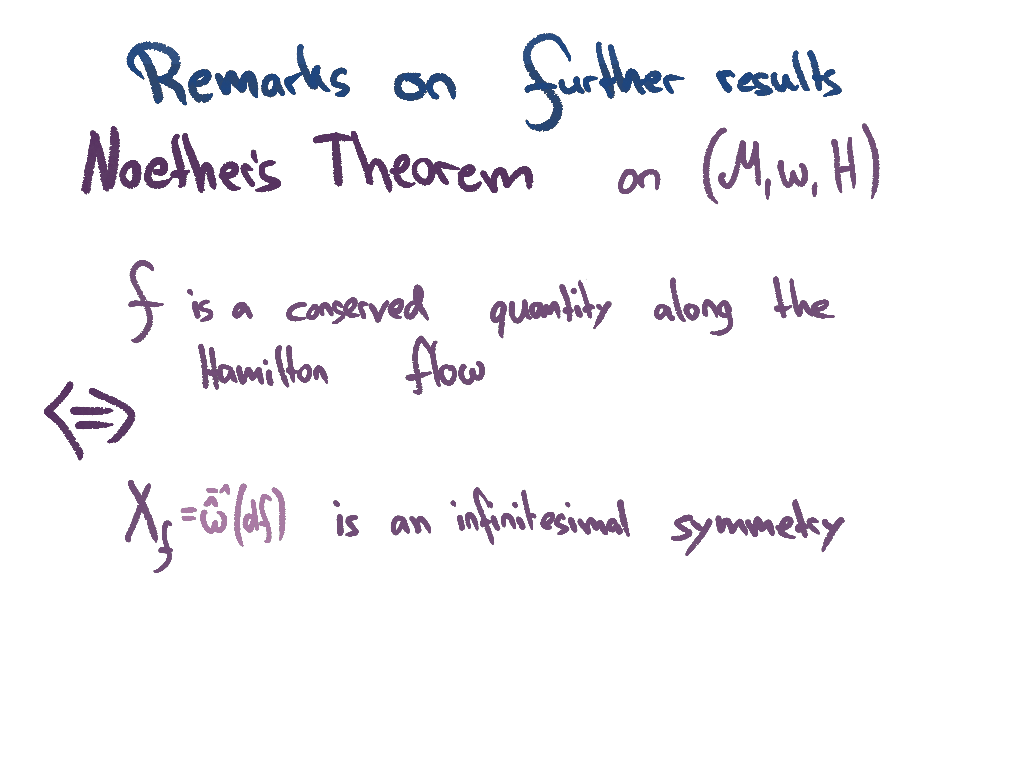 Remarks on further results
Noether's Theorem on (M, ω, H)
f is a conserved quantity along the
Hamilton flow
⟺
X_f = ω̂⁻¹(df) is an infinitesimal symmetry